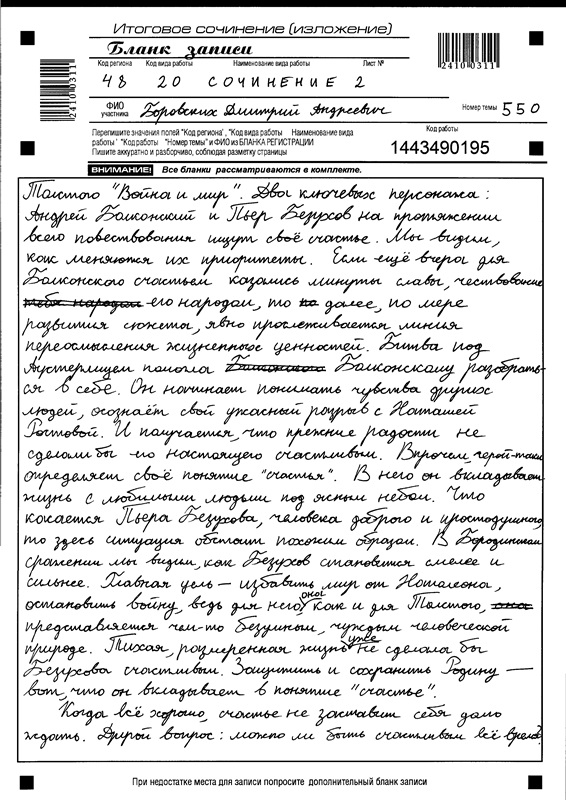 Итоговое сочинение (изложение)
Бланк записи
2410 0311
2410 0311
Код региона Код вида работы Наименование вида работы Лист №
48 20 СОЧИНЕНИЕ 2
ФИО участника Боровских Дмитрий Андреевич Номер темы 550
Перепишите значения полей "Код региона", "Код вида работы Наименование вида
работы" "Код работы "Номер темы" и ФИО из БЛАНКА РЕГИСТРАЦИИ
Пишите аккуратно и разборчиво, соблюдая разметку страницы
Код работы
1443490195
ВНИМАНИЕ! Все бланки рассматриваются в комплекте.
Толстого "Война и мир". Два ключевых персонажа:
Андрей Болконский и Пьер Безухов на протяжении
всего повествования ищут своё счастье. Мы видим,
как меняются их приоритеты. Если ещё вчера для
Болконского счастьем казались минуты славы, чествование
его народом, то далее, по мере
развития сюжета, явно прослеживается линия
переосмысления жизненных ценностей. Битва под
Аустерлицем помогла Болконскому разобрать-
ся в себе. Он начинает понимать чувства других
людей, осознаёт свой ужасный разрыв с Наташей
Ростовой. И получается, что прежние радости не
сделали бы по настоящего счастливым. Впрочем, герой-таки
определяет своё понятие "счастья". В него он вкладывает
жизнь с любимыми людьми под ясным небом. Что
касается Пьера Безухова, человека доброго и простодушного,
то здесь ситуация обстоит похожим образом. В Бородинском
сражении мы видим, как Безухов становится смелее и
сильнее. Главная цель — избавить мир от Наполеона,
остановить войну, ведь для него она, как и для Толстого,
представляется чем-то безумным, чуждым человеческой
природе. Тихая, размеренная жизнь уже не сделала бы
Безухова счастливым. Защитить и сохранить Родину —
вот, что он вкладывает в понятие "счастье".
Когда всё хорошо, счастье не заставит себя долго
ждать. Другой вопрос: можно ли быть счастливым всё время?
При недостатке места для записи попросите дополнительный бланк записи